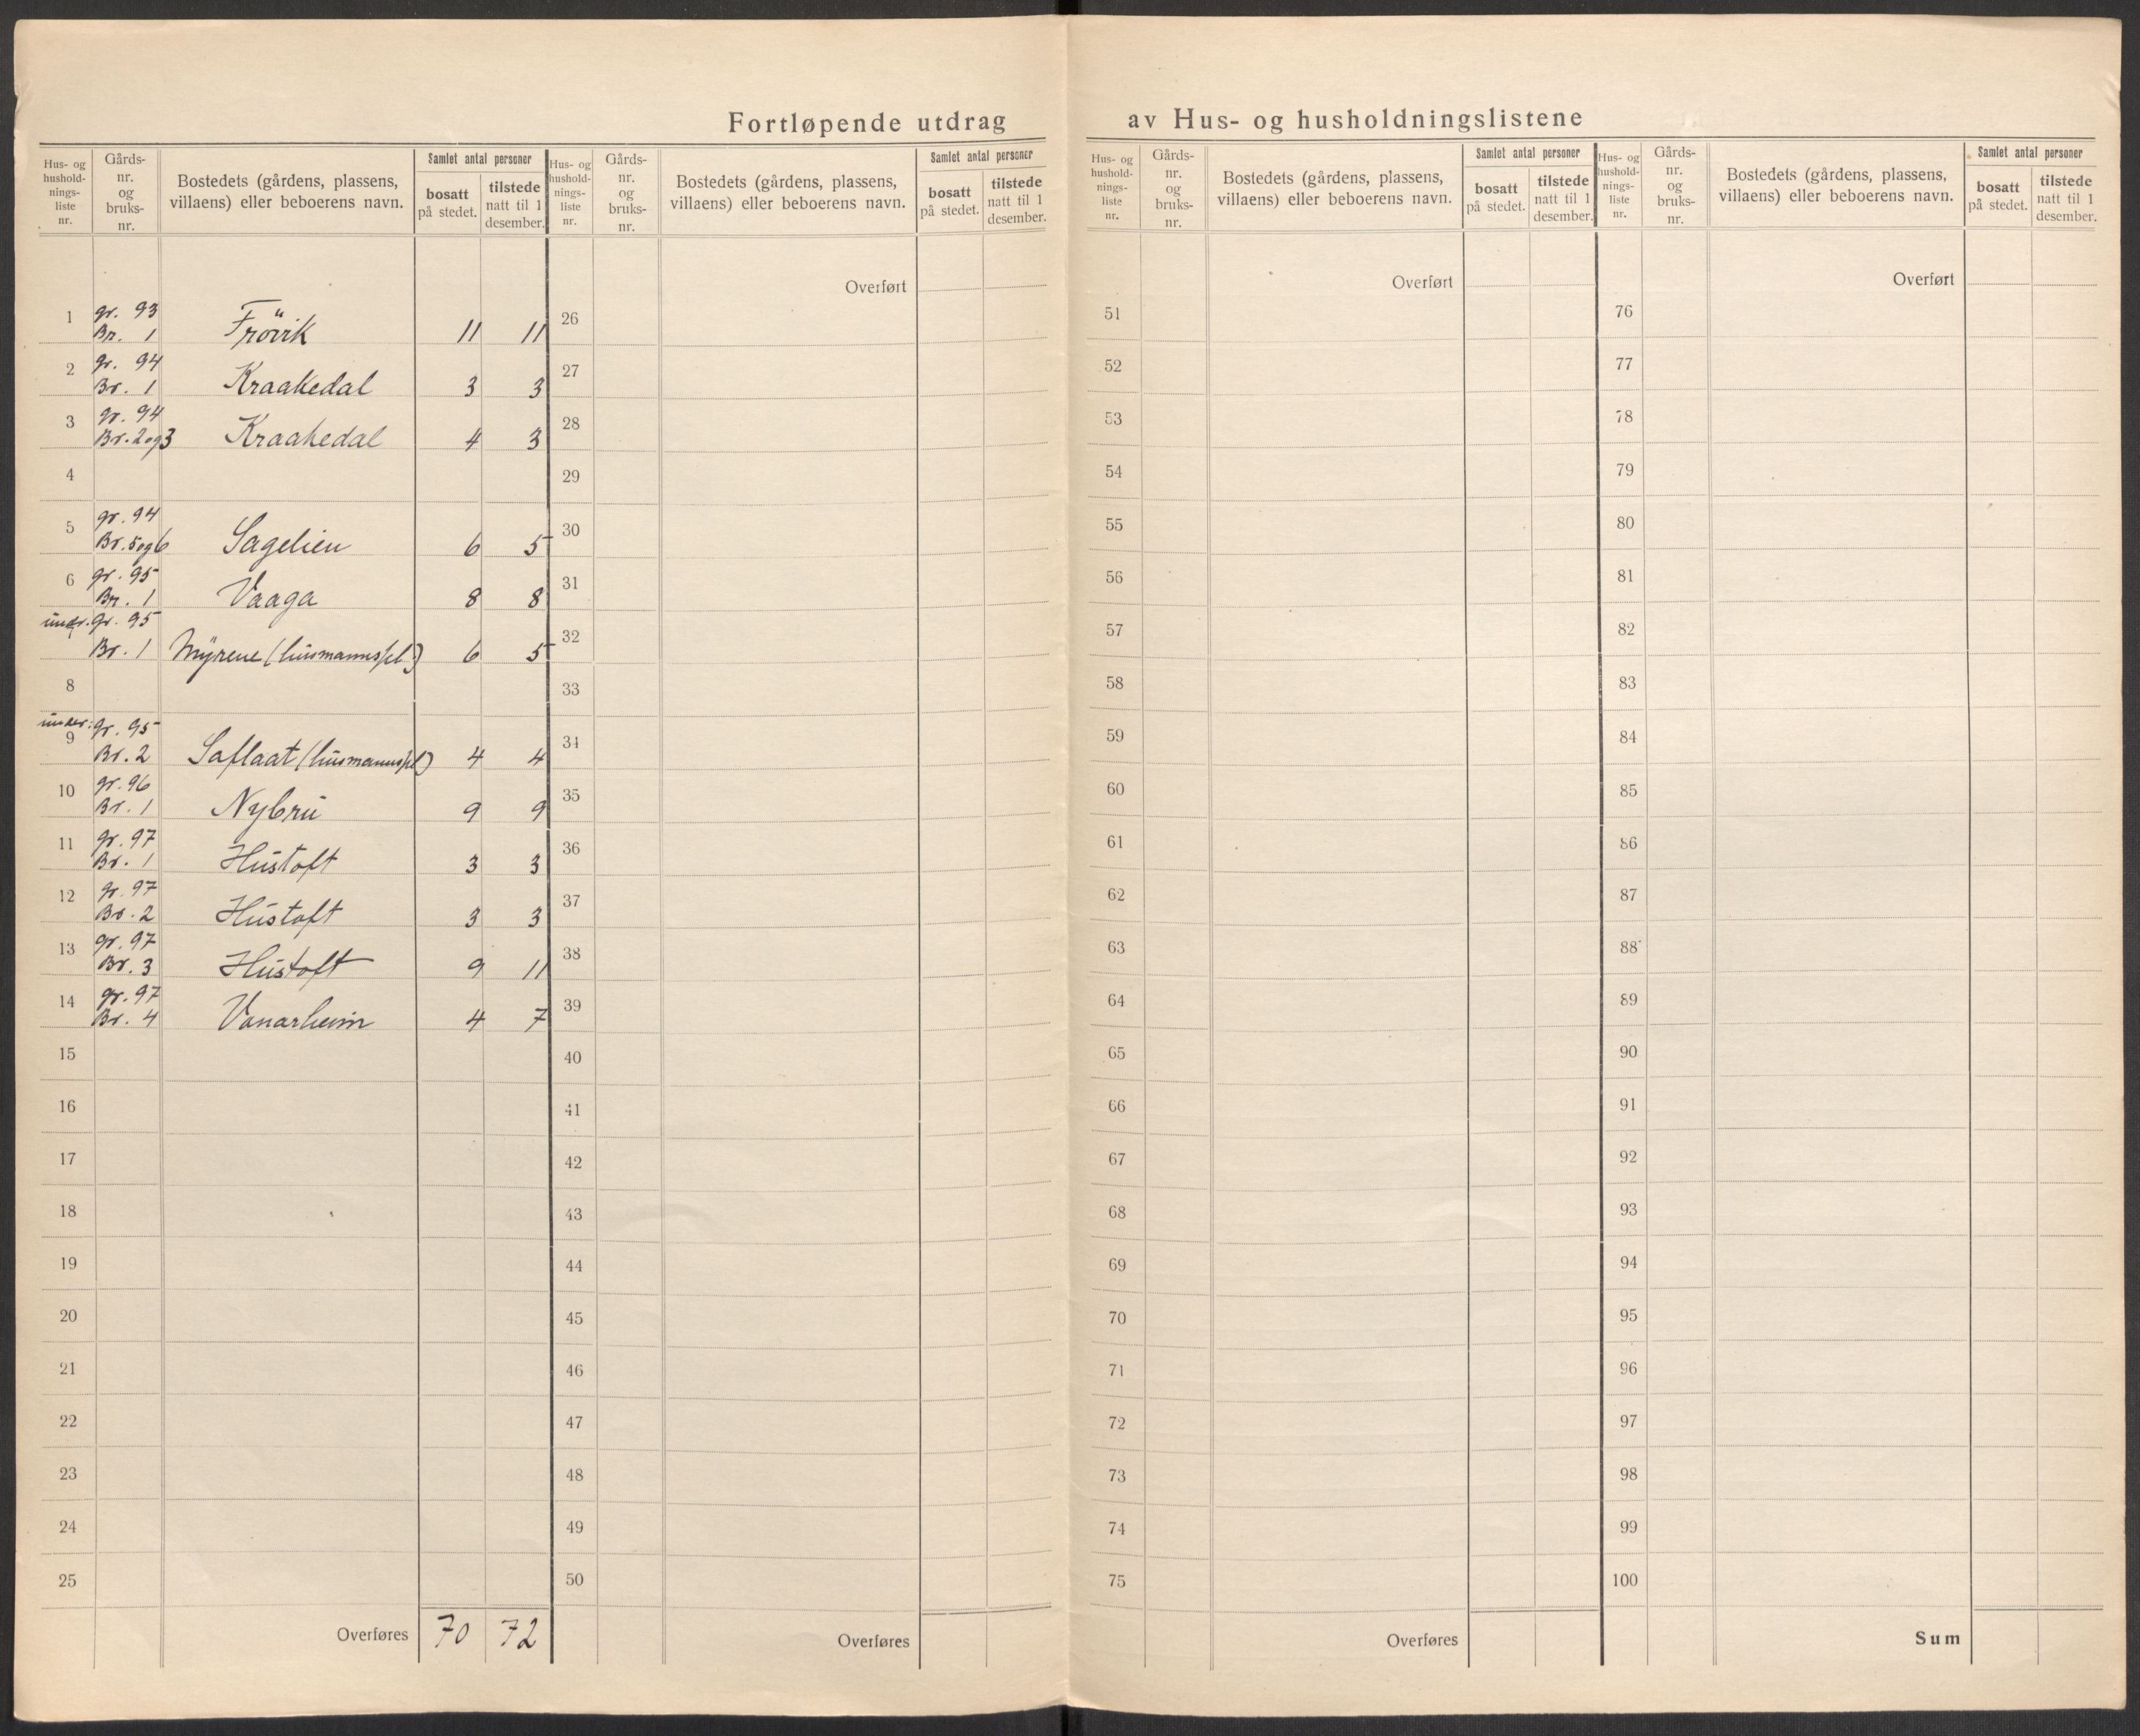 Fortløpende utdrag av Hus- og husholdningslistene
Hus- og husholdnings-liste nr. Gårds-nr. og bruks-nr. Bostedets (gårdens, plassens, villaens) eller beboerens navn. Samlet antal personer bosatt på stedet. tilstede natt til 1 desember.
Hus- og husholdnings-liste nr. Gårds-nr. og bruks-nr. Bostedets (gårdens, plassens, villaens) eller beboerens navn. Samlet antal personer bosatt på stedet. tilstede natt til 1 desember.
Hus- og husholdnings-liste nr. Gårds-nr. og bruks-nr. Bostedets (gårdens, plassens, villaens) eller beboerens navn. Samlet antal personer bosatt på stedet. tilstede natt til 1 desember.
Hus- og husholdnings-liste nr. Gårds-nr. og bruks-nr. Bostedets (gårdens, plassens, villaens) eller beboerens navn. Samlet antal personer bosatt på stedet. tilstede natt til 1 desember.
1 gr. 93 Br. 1 Frövik 11 11
2 gr. 94 Br. 1 Kraakedal 3 3
3 gr. 94 Br. 2 og 3 Kraakedal 4 3
4
5 gr. 94 Br. 5 og 6 Sagelien 6 5
6 gr. 95 Br. 1 Vaaga 8 8
gr. 95 Br. 1 Myrene (husmannspl.) 6 5
8
under: 9 gr. 95 Br. 2 Saflaat (husmannspl) 4 4
10 gr. 96 Br. 1 Nybru 9 9
11 gr. 97 Br. 1 Hustoft 3 3
12 gr. 97 Br. 2 Hustoft 3 3
13 gr. 97 Br. 3 Hustoft 9 11
14 gr. 97 Br. 4 Vonarheim 4 7
15
16
17
18
19
20
21
22
23
24
25
Overføres 70 72
Overført
26
27
28
29
30
31
32
33
34
35
36
37
38
39
40
41
42
43
44
45
46
47
48
49
50
Overføres
Overført
51
52
53
54
55
56
57
58
59
60
61
62
63
64
65
66
67
68
69
70
71
72
73
74
75
Overføres
Overført
76
77
78
79
80
81
82
83
84
85
86
87
88
89
90
91
92
93
94
95
96
97
98
99
100
Sum